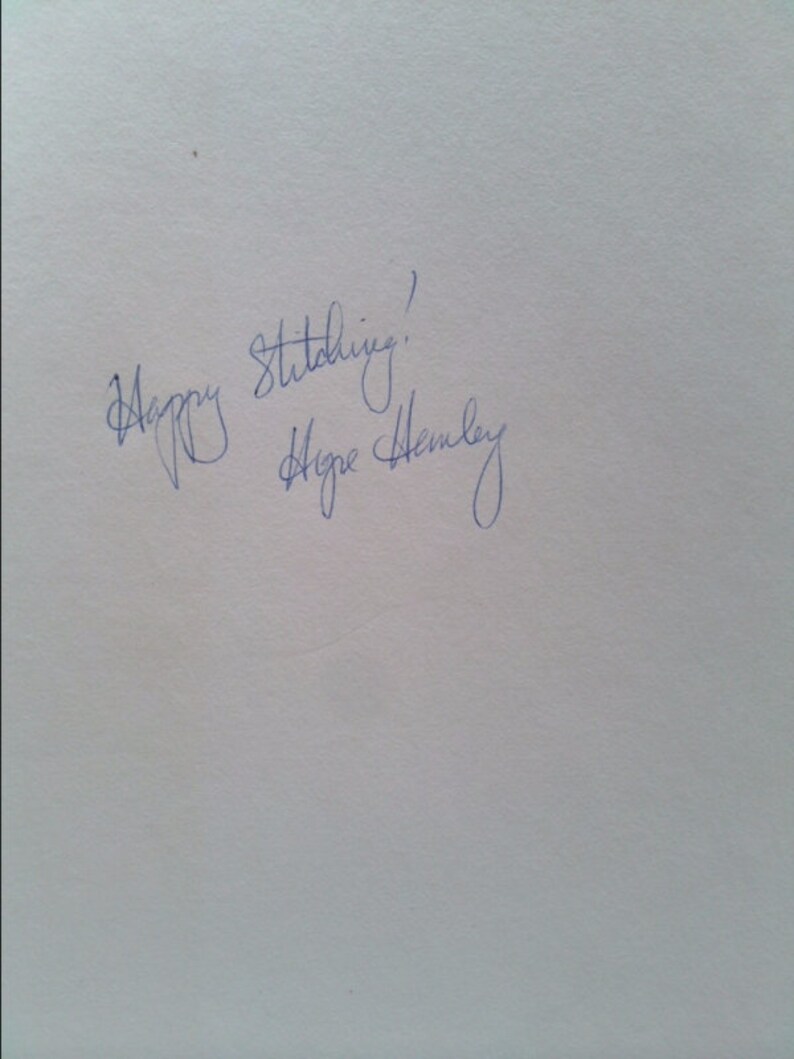 Happy Stitching!
Hope Hanley